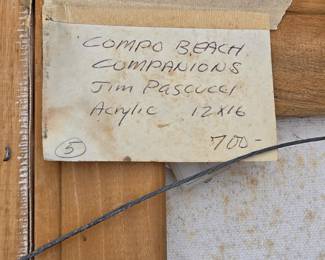 COMPO BEACH
COMPANIONS
Jim Pascucci
Acrylic 12x16
700-
5